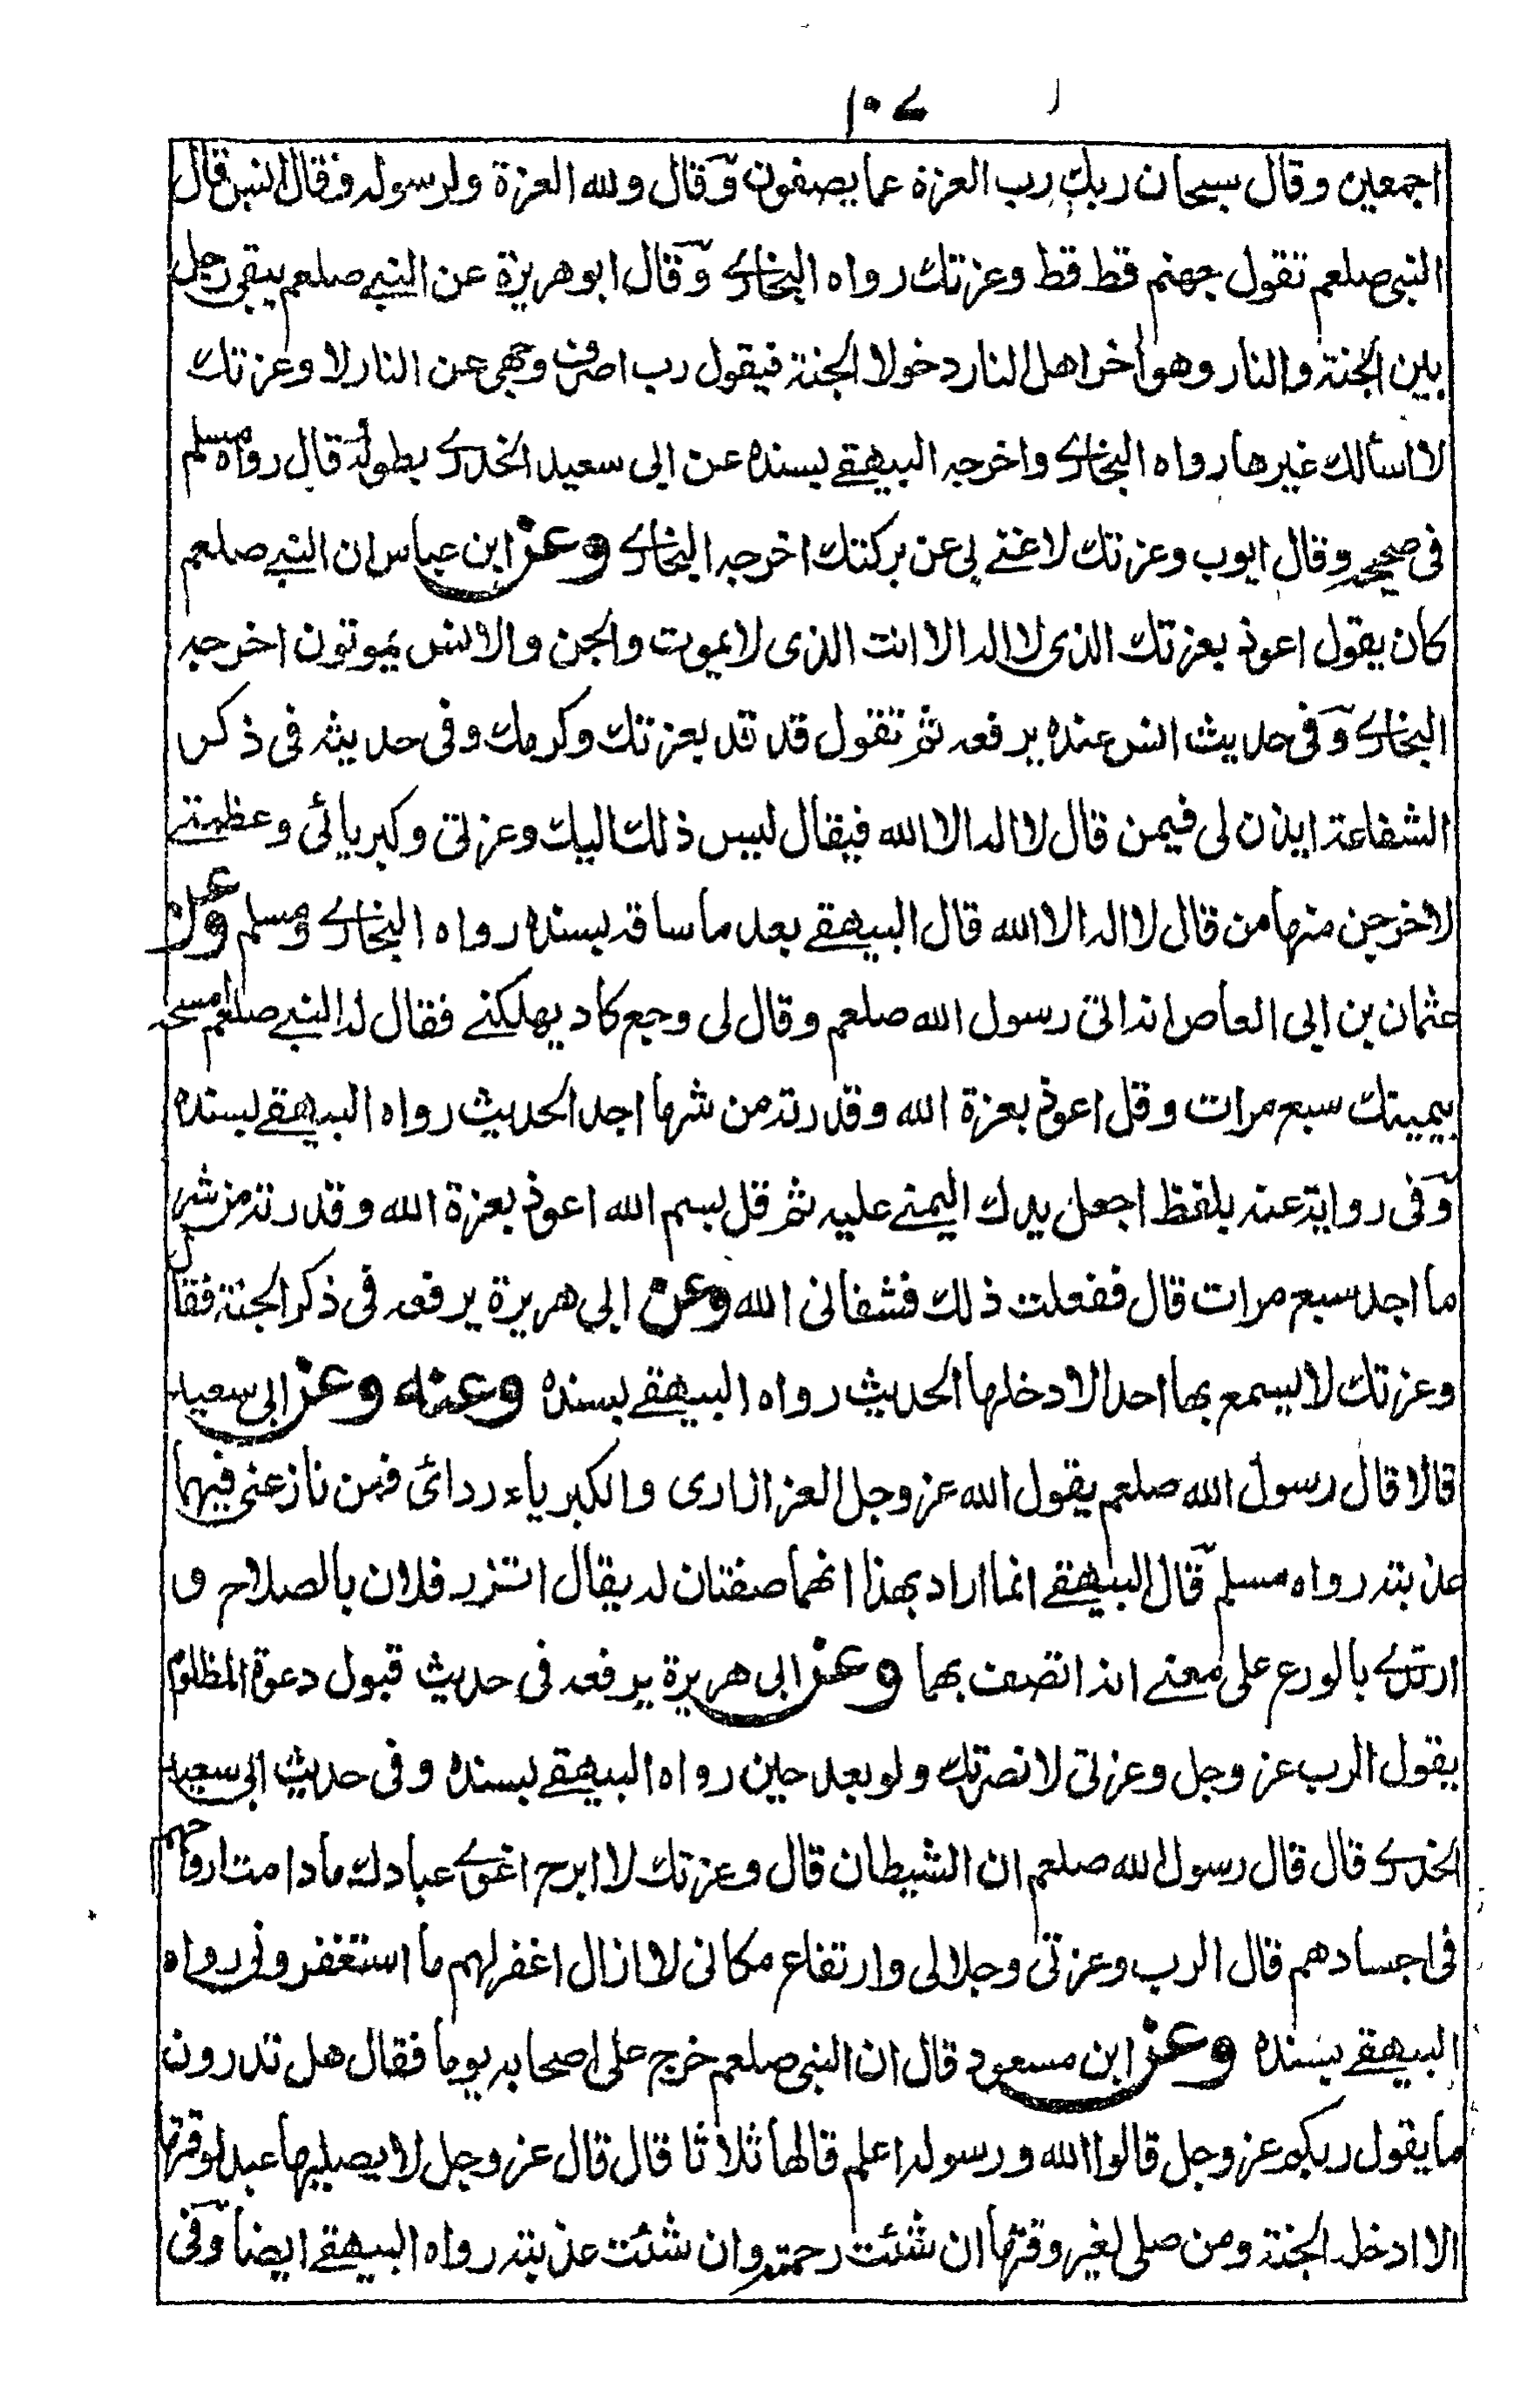 ١٠٧
اجمعين وقال سبحان ربك رب العزة عما يصفون وقال ولله العزة ولرسوله وقال انس قال
النبى صلعم تقول جهنم قط قط وعزتك رواه البخارى وقال ابو هريرة عن النبى صلعم يبقى رجل
بين الجنة والنار وهو أخر اهل النار دخولا الجنة فيقول رب اصرف وجهى عن النار لا وعزتك
لا اسألك غيرها رواه البخارى واخرجه البيهقى بسنده عن ابى سعيد الخدرى بطوله قال رواه مسلم
فى صحيحه وقال ايوب وعزتك لا غنى بى عن بركتك اخرجه البخارى وعن ابن عباس ان النبى صلعم
كان يقول اعوذ بعزتك الذى لا اله الا انت الذى لا يموت والجن والانس يموتون اخرجه
البخارى وفى حديث انس عنده يرفعه ثم تقول قد قد بعزتك وكرمك وفى حديثه فى ذكر
الشفاعة ايذن لى فيمن قال لا اله الا الله فيقال ليس ذلك اليك وعزتى وكبريائى وعظمتى
لاخرجن منها من قال لا اله الا الله قال البيهقى بعد ما ساقه بسنده رواه البخارى ومسلم وعن
عثمان بن ابى العاص انه اتى رسول الله صلعم وقال لى وجع كاد يهلكنى فقال له النبى صلعم امسحه
بيمينك سبع مرات وقل اعوذ بعزة الله وقدرته من شر ما اجد الحديث رواه البيهقى بسنده
وفى رواية عنه بلفظ اجعل يدك اليمنى عليه ثم قل بسم الله اعوذ بعزة الله وقدرته من شر
ما اجد سبع مرات قال ففعلت ذلك فشفانى الله وعن ابى هريرة يرفعه فى ذكر الجنة فقال
وعزتك لا يسمع بها احد الا دخلها الحديث رواه البيهقى بسنده وعنه وعن ابى سعيد
قالا قال رسول الله صلعم يقول الله عز وجل العز ازارى والكبرياء ردائى فمن نازعنى فيهما
عذبته رواه مسلم قال البيهقى انما اراد بهذا انهما صفتان له يقال اتزر فلان بالصلاح و
ارتدى بالورع على معنى انه اتصف بهما وعن ابى هريرة يرفعه فى حديث قبول دعوة المظلوم
يقول الرب عز وجل وعزتى لانصرنك ولو بعد حين رواه البيهقى بسنده وفى حديث ابى سعيد
الخدرى قال قال رسول الله صلعم ان الشيطان قال وعزتك لا ابرح اغوى عبادك ما دامت ارواحهم
فى اجسادهم قال الرب وعزتى وجلالى وارتفاع مكانى لا ازال اغفر لهم ما استغفرونى رواه
البيهقى بسنده وعن ابن مسعود قال ان النبى صلعم خرج على اصحابه يوما فقال هل تدرون
ما يقول ربكم عز وجل قالوا الله ورسوله اعلم قالها ثلاثا قال قال عز وجل لا يصليها عبد لوقتها
الا ادخله الجنة ومن صلى لغير وقتها ان شئت رحمته وان شئت عذبته رواه البيهقى ايضا وفى